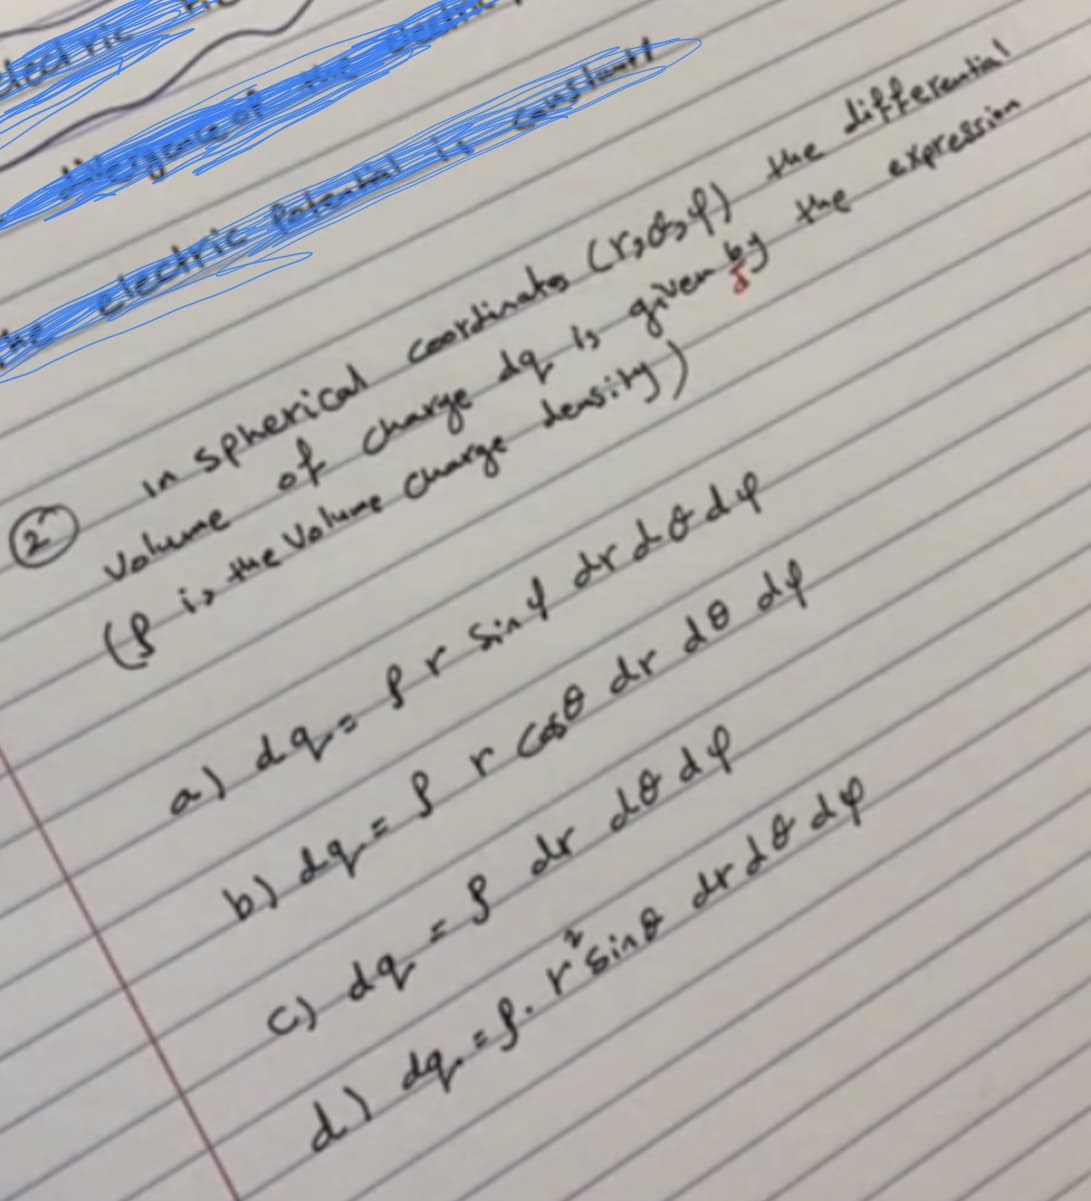 electric
divergence of the electric
the electric potential is constant!
② in spherical coordinates (r,θ,φ) the differential
volume of charge dq is given by the expression
(ρ is the volume charge density)
a) dq = ρ r sinφ dr dθ dφ
b) dq = ρ r cosθ dr dθ dφ
c) dq = ρ dr dθ dφ
d) dq = ρ. r² sinθ dr dθ dφ